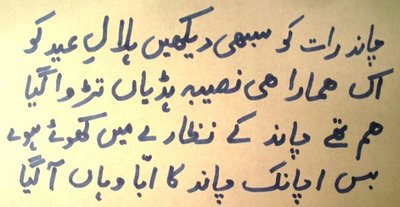 چاند رات کو سبھی دیکھیں ہلالِ عید کو
اک ھمارا ھی نصیبہ ہڈیاں تڑوا گیا
ھم تھے چاند کے نظارے میں کھوئے ہوئے
بس اچانک چاند کا ابّا وہاں آ گیا